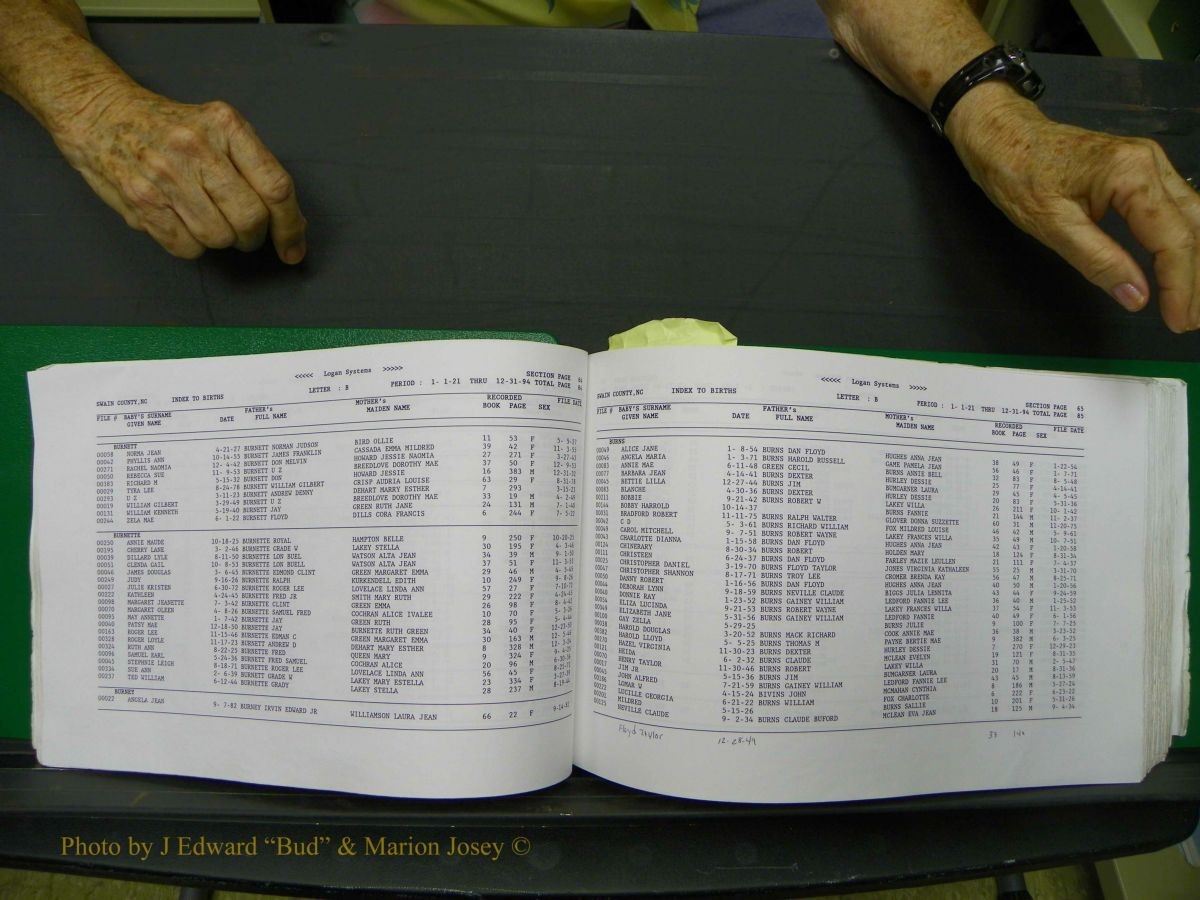 <<<<< Logan Systems >>>>>
SECTION PAGE 64
SWAIN COUNTY,NC INDEX TO BIRTHS LETTER : B PERIOD : 1- 1-21 THRU 12-31-94 TOTAL PAGE 84
FILE # BABY'S SURNAME GIVEN NAME DATE FATHER's FULL NAME MOTHER's MAIDEN NAME RECORDED BOOK PAGE SEX FILE DATE
BURNETT
00058 NORMA JEAN 4-21-27 BURNETT NORMAN JUDSON BIRD OLLIE 11 53 F
00042 PHYLLIS ANN 10-14-53 BURNETT JAMES FRANKLIN CASSADA EMMA MILDRED 39 42 F
00271 RACHEL NAOMIA 12- 4-42 BURNETT DON MELVIN HOWARD JESSIE NAOMIA 27 271 F
00050 REBECCA SUE 11- 9-53 BURNETT U Z BREEDLOVE DOROTHY MAE 37 50 F
00383 RICHARD M 5-15-32 BURNETT DON HOWARD JESSIE 16 38 M
00029 TYRA LEE 8-24-78 BURNETT WILLIAM GILBERT CRISP AUDRIA LOUISE 63 29 F
00293 U Z 3-11-23 BURNETT ANDREW DENNY DEHART MARRY ESTHER 7 293
00019 WILLIAM GILBERT 3-29-49 BURNETT U Z BREEDLOVE DOROTHY MAE 33 19 M
00131 WILLIAM KENNETH 5-19-40 BURNETT JAY GREEN RUTH JANE 24 131 M
00244 ZELA MAE 6- 1-22 BURNETT FLOYD DILLS CORA FRANCIS 6 244 F
BURNETTE
00250 ANNIE MAUDE 10-18-25 BURNETTE ROYAL HAMPTON BELLE 9 250 F 10-20-25
00195 CHERRY LANE 3- 2-46 BURNETTE GRADE W LAKEY STELLA 30 195 F
00039 DILLARD LYLE 8-11-50 BURNETTE LON BUEL WATSON ALTA JEAN 34 39 M
00051 GLENDA GAIL 10- 8-53 BURNETTE LON BUELL WATSON ALTA JEAN 37 51 F
00046 JAMES DOUGLAS 3- 6-45 BURNETTE EDMOND CLINT GREEN MARGARET EMMA 29 46 M
00249 JUDY 9-16-26 BURNETTE RALPH KURKENDELL EDITH 10 249 F
00027 JULIE KRISTEN 6-30-72 BURNETTE ROGER LEE LOVELACE LINDA ANN 57 27 F
00222 KATHLEEN 4-24-45 BURNETTE FRED JR SMITH MARY RUTH 29 222 F
00098 MARGARET JEANETTE 7- 3-42 BURNETTE CLINT GREEN EMMA 26 98 F
00070 MARGARET OLEEN 4- 8-26 BURNETTE SAMUEL FRED COCHRAN ALICE IVALEE 10 70 F
00095 MAY ANNETTE 1- 7-42 BURNETTE JAY GREEN RUTH 28 95 F
00040 PATSY MAE 12-18-50 BURNETTE JAY BURNETTE RUTH GREEN 34 40 F
00163 ROGER LEE 11-15-46 BURNETTE EDMAN C GREEN MARGARET EMMA 30 163 M
00328 ROGER LOYLE BURNETT ANDREW D DEHART MARY ESTHER 8 328 M
00324 RUTH ANN 8-22-25 BURNETTE FRED QUEEN MARY 9 324 F
00096 SAMUEL EARL 5-24-36 BURNETT FRED SAMUEL COCHRAN ALICE 20 96 M
00045 STEPHNIE LEIGH 8-18-71 BURNETTE ROGER LEE LOVELACE LINDA ANN 56 45 F
00234 SUE ANN 2- 6-39 BURNETT GRADE W LAKEY MARY ESTELLA 23 334 F
00237 TED WILLIAM 6-12-44 BURNETTE GRADY LAKEY STELLA 28 237 M
BURNEY
00022 ANGELA JEAN 9- 7-82 BURNEY IRVIN EDWARD JR WILLIAMSON LAURA JEAN 66 22 F
<<<<< Logan Systems >>>>>
SECTION PAGE 65
SWAIN COUNTY,NC INDEX TO BIRTHS LETTER : B PERIOD : 1- 1-21 THRU 12-31-94 TOTAL PAGE 85
FILE # BABY'S SURNAME GIVEN NAME DATE FATHER's FULL NAME MOTHER's MAIDEN NAME RECORDED BOOK PAGE SEX FILE DATE
BURNS
00049 ALICE JANE 1- 8-54 BURNS DAN FLOYD HUGHES ANNA JEAN 38 49 F 1-22-54
00046 ANGELA MARIA 1- 3-71 BURNS HAROLD RUSSELL GAME PAMELA JEAN 56 46 F 1- 7-71
00083 ANNIE MAE 6-11-48 GREEN CECIL BURNS ANNIE BELL 32 83 F 8- 5-48
00077 BARBARA JEAN 4-14-41 BURNS DEXTER HURLEY DESSIE 25 77 F 4-14-41
00045 BETTIE LILLA 12-27-44 BURNS JIM BUMGARNER LAURA 29 45 F 4- 5-45
00083 BLANCHE 4-30-36 BURNS DEXTER HURLEY DESSIE 20 83 F 5-31-36
00211 BOBBIE 9-21-42 BURNS ROBERT W LAKEY WILLA 26 211 F 10- 1-42
00144 BOBBY HARROLD 10-14-37 BURNS FANNIE 21 144 M 11- 2-37
00031 BRADFORD ROBERT 11-11-75 BURNS RALPH WALTER GLOVER DONNA SUZZETTE 60 31 M 11-20-75
00042 C D 5- 3-61 BURNS RICHARD WILLIAM FOX MILDRED LOUISE 46 42 M 5- 9-61
00049 CAROL MITCHELL 9- 7-51 BURNS ROBERT WAYNE LAKEY FRANCES WILLA 35 49 M 10- 7-51
00043 CHARLOTTE DIANNA 1-15-58 BURNS DAN FLOYD HUGHES ANNA JEAN 42 43 F 1-20-58
00124 CHINERARY 8-30-34 BURNS ROBERT HOLDEN MARY 18 124 F 8-31-34
00111 CHRISTEEN 6-24-37 BURNS DAN FLOYD FARLEY MAZIE LEULLEN 21 111 F 7- 4-37
00025 CHRISTOPHER DANIEL 3-19-70 BURNS FLOYD TAYLOR JONES VIRGINIA KATHALEEN 55 25 M 3-31-70
00047 CHRISTOPHER SHANNON 8-17-71 BURNS TROY LEE CROMER BRENDA KAY 56 47 M 8-25-71
00050 DANNY ROBERT 1-16-56 BURNS DAN FLOYD HUGHES ANNA JEAN 40 50 M 1-20-56
00044 DEBORAH LYNN 9-18-59 BURNS NEVILLE CLAUDE BIGGS JULIA LENNITA 43 44 F 9-24-59
00040 DONNIE RAY 1-23-52 BURNS GAINEY WILLIAM LEDFORD FANNIE LEE 36 40 M 1-25-52
00054 ELIZA LUCINDA 9-21-53 BURNS ROBERT WAYNE LAKEY FRANCES WILLA 37 54 F 11- 3-53
00049 ELIZABETH JANE 5-31-56 BURNS GAINEY WILLIAM LEDFORD FANNIE 40 49 F 6- 1-56
00100 GAY ZELLA 5-29-25 BURNS JULIE 9 100 F 7- 7-25
00038 HAROLD DOUGLAS 3-20-52 BURNS MACK RICHARD COOK ANNIE MAE 36 38 M 3-23-52
00382 HAROLD LLOYD 5- 5-25 BURNS THOMAS M PAYNE BERTIE MAE 9 382 M 6- 3-25
00270 HAZEL VIRGINIA 11-30-23 BURNS DEXTER HURLEY DESSIE 7 270 F 12-29-23
00121 HEIDA 6- 2-32 BURNS CLAUDE MCLEAN EVELYN 19 121 F 8-31-35
00070 HENRY TAYLOR 11-30-46 BURNS ROBERT LAKEY WILLA 31 70 M 2- 3-47
00017 JIM JR 5-15-36 BURNS JIM BUMGARNER LAURA 20 17 M 8-31-36
00045 JOHN ALFRED 7-21-59 BURNS GAINEY WILLIAM LEDFORD FANNIE LEE 43 45 M 8-13-59
00186 LOMAR W 4-15-24 BIVINS JOHN MCMAHAN CYNTHIA 8 186 M 5-27-24
00222 LUCILLE GEORGIA 6-21-22 BURNS WILLIAM FOX CHARLOTTE 6 222 F 6-25-22
00201 MILDRED 5-15-26 BURNS SALLIE 10 201 F 5-31-26
00125 NEVILLE CLAUDE 9- 2-34 BURNS CLAUDE BUFORD MCLEAN EVA JEAN 18 125 M 9- 4-34
Floyd Taylor 12-28-49 33 140
Photo by J Edward “Bud” & Marion Josey ©